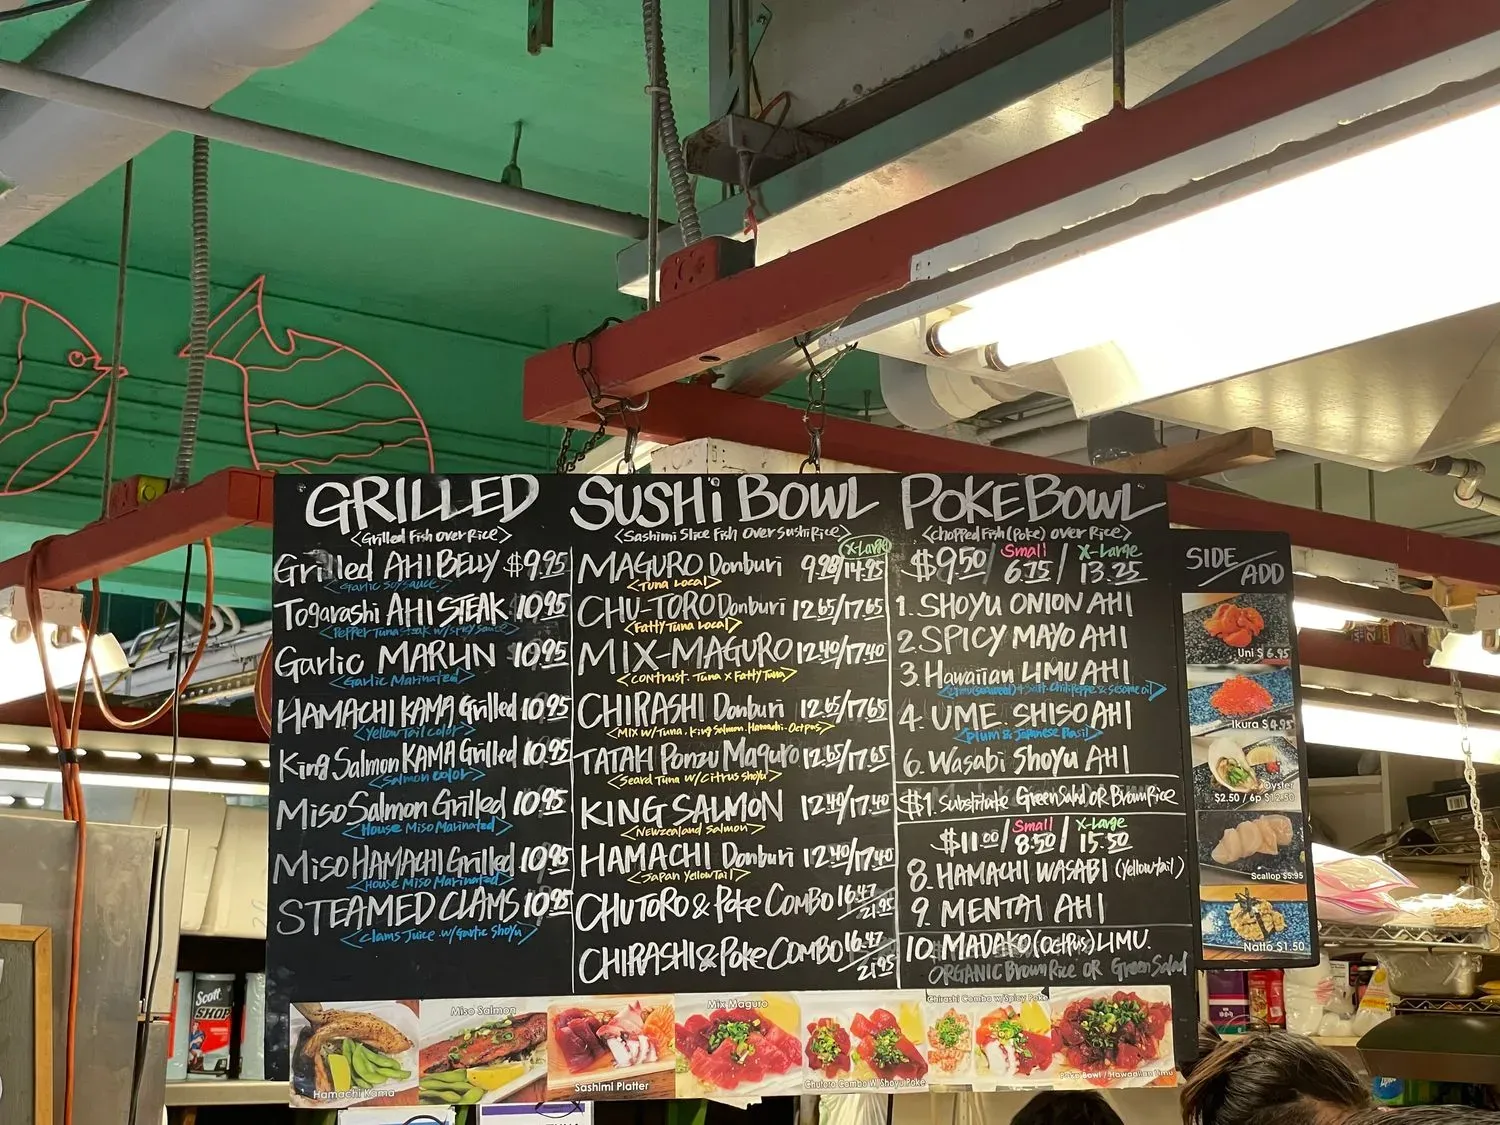 GRILLED
<Grilled Fish over Rice>
Grilled AHI BELLY $9.95
<Garlic Soysauce>
Togarashi AHI STEAK 10.95
<Pepper Tuna Steak w/Spicy Sauce>
Garlic MARLIN 10.95
<Garlic Marinated>
HAMACHI KAMA Grilled 10.95
<Yellow Tail color>
King Salmon KAMA Grilled 10.95
<Salmon color>
Miso Salmon Grilled 10.95
<House Miso Marinated>
Miso HAMACHI Grilled 10.95
<House Miso Marinated>
STEAMED CLAMS 10.95
<Clams Juice w/Garlic Shoyu>
SUSHi BOWL
<Sashimi Slice Fish Over Sushi Rice>
X-Large
MAGURO Donburi 9.98/14.95
<Tuna Local>
CHU-TORO Donburi 12.65/17.65
<Fatty Tuna Local>
MIX-MAGURO 12.40/17.40
<Contrust. Tuna x Fatty Tuna>
CHIRASHI Donburi 12.65/17.65
<MIX w/Tuna. King Salmon. Hamachi. Octpus>
TATAKI Ponzu Maguro 12.65/17.65
<Seard Tuna w/Citrus Shoyu>
KING SALMON 12.40/17.40
<Newzealand Salmon>
HAMACHI Donburi 12.40/17.40
<Japan YellowTail>
CHUTORO & Poke COMBO 16.47/21.95
CHIRASHI & Poke COMBO 16.47/21.95
POKE BOWL
<chopped Fish (Poke) over Rice>
Small X-Large
$9.50/6.75/13.25
1. SHOYU ONION AHI
2. SPICY MAYO AHI
3. Hawaiian LIMU AHI
4. UME. SHISO AHI
<Plum & Japanese Basil>
6. Wasabi Shoyu AHI
$1. Substitute Green Salad OR Brown Rice
Small X-Large
$11.00/8.50/15.50
8. HAMACHI WASABI (Yellowtail)
9. MENTAI AHI
10. MADAKO (Octpus) LIMU.
ORGANIC Brown Rice OR Green Salad
SIDE/ADD
Uni $6.95
Ikura $4.95
Oyster
$2.50 / 6p $12.50
Scallop $5.95
Natto $1.50
Hamachi Kama
Miso Salmon
Sashimi Platter
Mix Maguro
Chutoro Combo W Shoyu Poke
Chirashi Combo w/Spicy Poke
Poke Bowl / Hawaiian Limu
Scott
SHOP